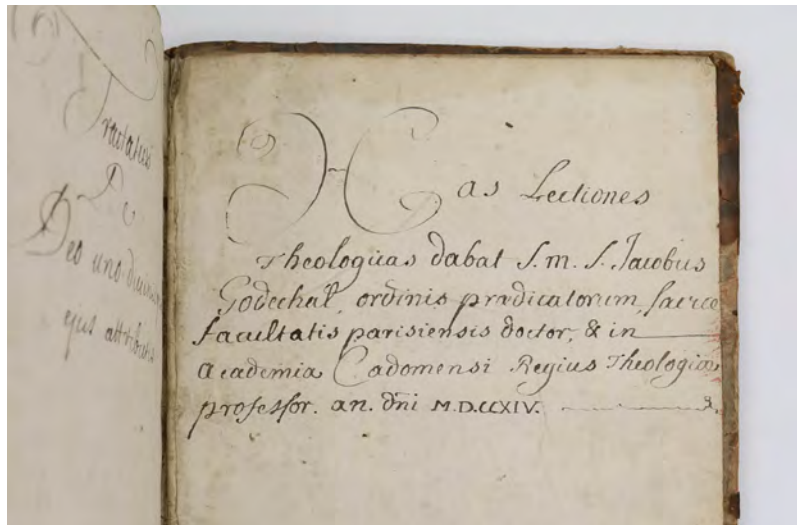 Tractatus
De
Deo uno divinis
ejus attributis
Has Lectiones
Theologicas dabat S. m. S. Jacobus
Godechal, ordinis prædicatorum, sacræ
facultatis parisiensis doctor, & in
academia Cadomensi Regius Theologiæ
professor. an. dni M.D.CCXIV.